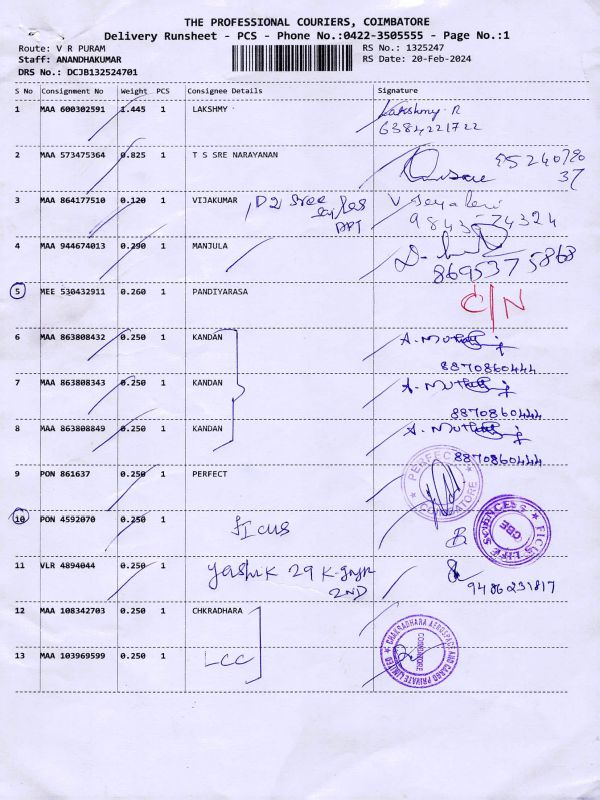 THE PROFESSIONAL COURIERS, COIMBATORE
Delivery Runsheet - PCS - Phone No.:0422-3505555 - Page No.:1
Route: V R PURAM RS No.: 1325247
Staff: ANANDHAKUMAR RS Date: 20-Feb-2024
DRS No.: DCJB132524701
S No Consignment No Weight PCS Consignee Details Signature
1 MAA 600302591 1.445 1 LAKSHMY Lakshmy. R
6384221722
2 MAA 573475364 0.825 1 T S SRE NARAYANAN 95240720
37
3 MAA 864177510 0.120 1 VIJAKUMAR D2 Sree
APT
4 MAA 944674013 0.290 1 MANJULA
8695375868
5 MEE 530432911 0.260 1 PANDIYARASA C/N
6 MAA 863808432 0.250 1 KANDAN
8870860444
7 MAA 863808343 0.250 1 KANDAN
8870860444
8 MAA 863808849 0.250 1 KANDAN
8870860444
9 PON 861637 0.250 1 PERFECT PERFECT COIMBATORE
10 PON 4592070 0.250 1 ficus B. FICUS LIFE SCIENCES CBE
11 VLR 4894044 0.250 1 29 K-
2ND 9486231817
12 MAA 108342703 0.250 1 CHKRADHARA
13 MAA 103969599 0.250 1 LCC CHAKRADHARA AEROSPACE AND CARGO PRIVATE LIMITED COIMBATORE